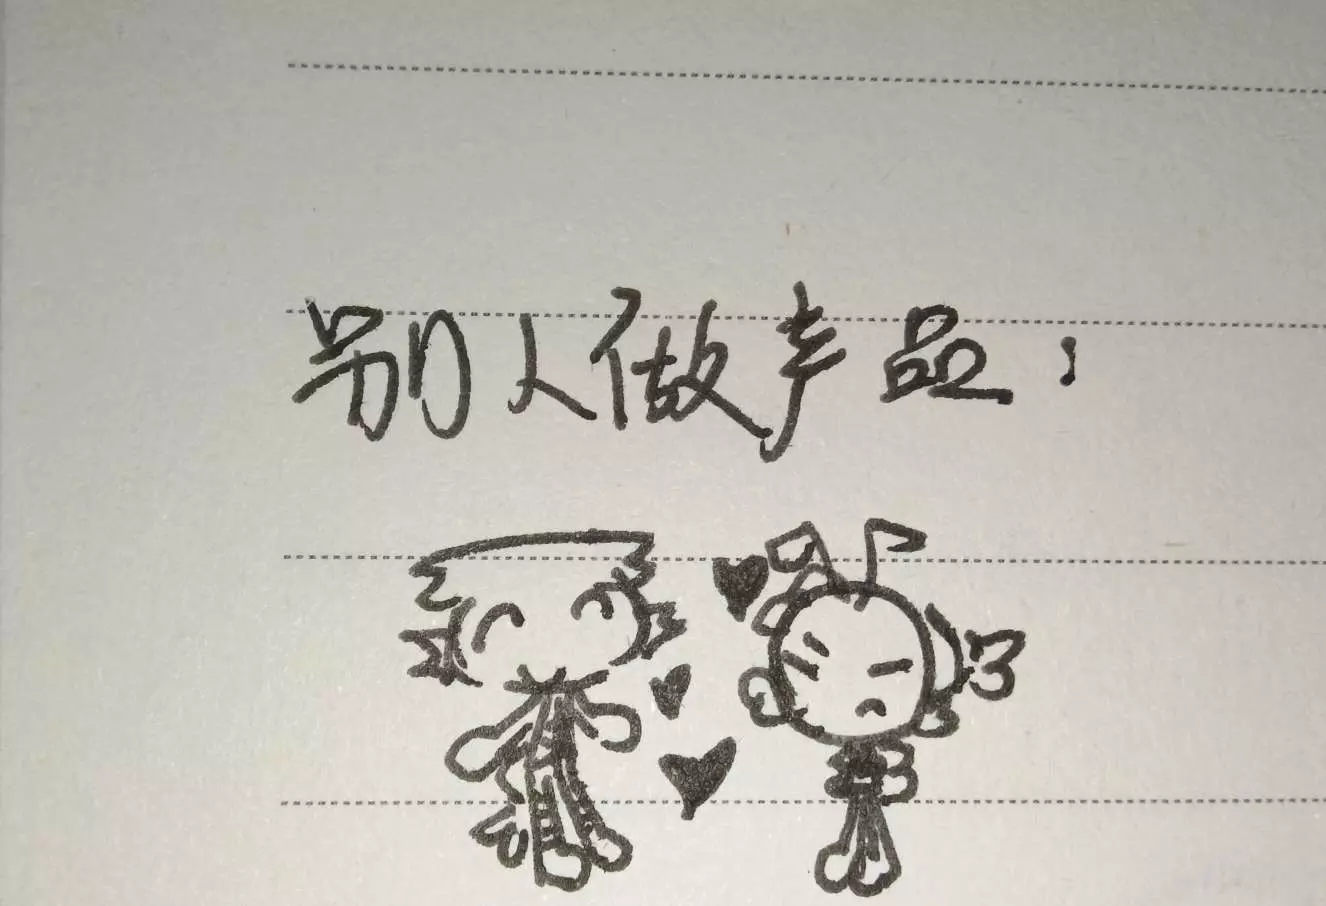 别人做产品：